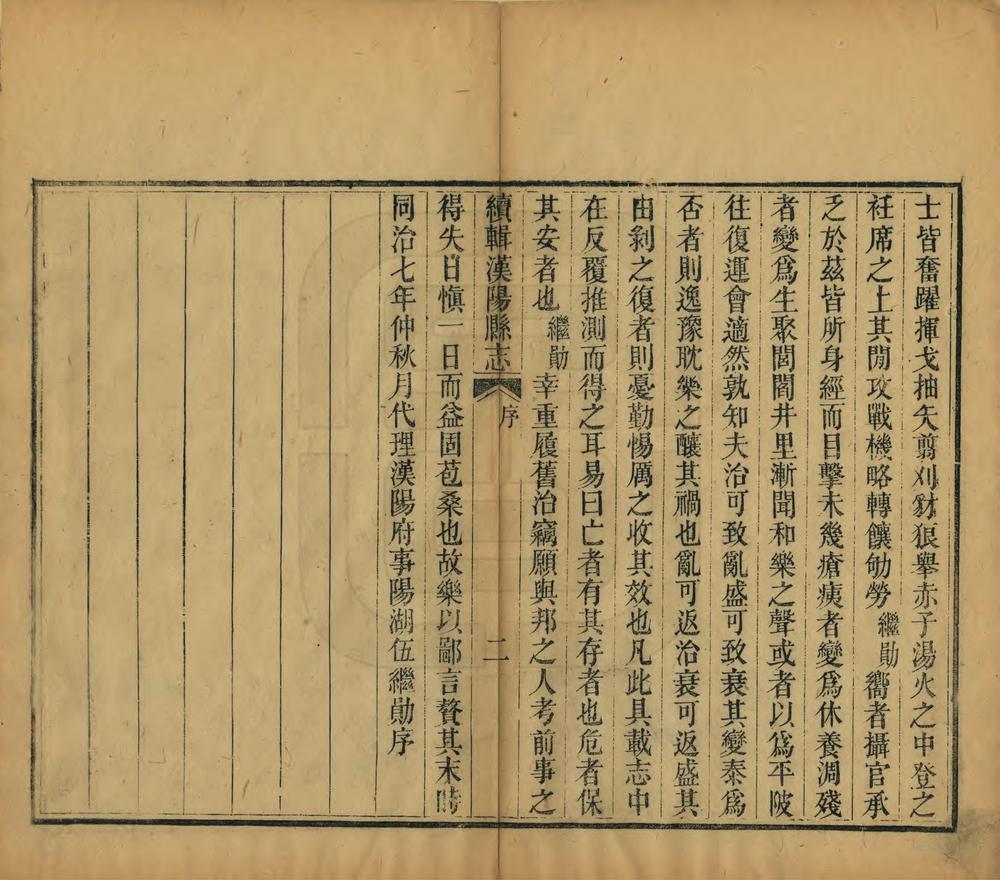 士皆奮躍揮戈抽矢翦刈豺狼舉赤子湯火之中登之
衽席之上其閒攻戰機略轉饟劬勞繼勛嚮者攝官承
乏於茲皆所身經而目擊未幾瘡痍者變爲休養凋殘
者變爲生聚閭閻井里漸聞和樂之聲或者以爲平陂
往復運會適然孰知夫治可致亂盛可致衰其變泰爲
否者則逸豫耽樂之釀其禍也亂可返治衰可返盛其
由剝之復者則憂勤惕厲之收其效也凡此具載志中
在反覆推測而得之耳易曰亡者有其存者也危者保
其安者也繼勛幸重履舊治竊願與邦之人考前事之
續輯漢陽縣志 序 二
得失日愼一日而益固苞桑也故樂以鄙言贅其末時
同治七年仲秋月代理漢陽府事陽湖伍繼勛序